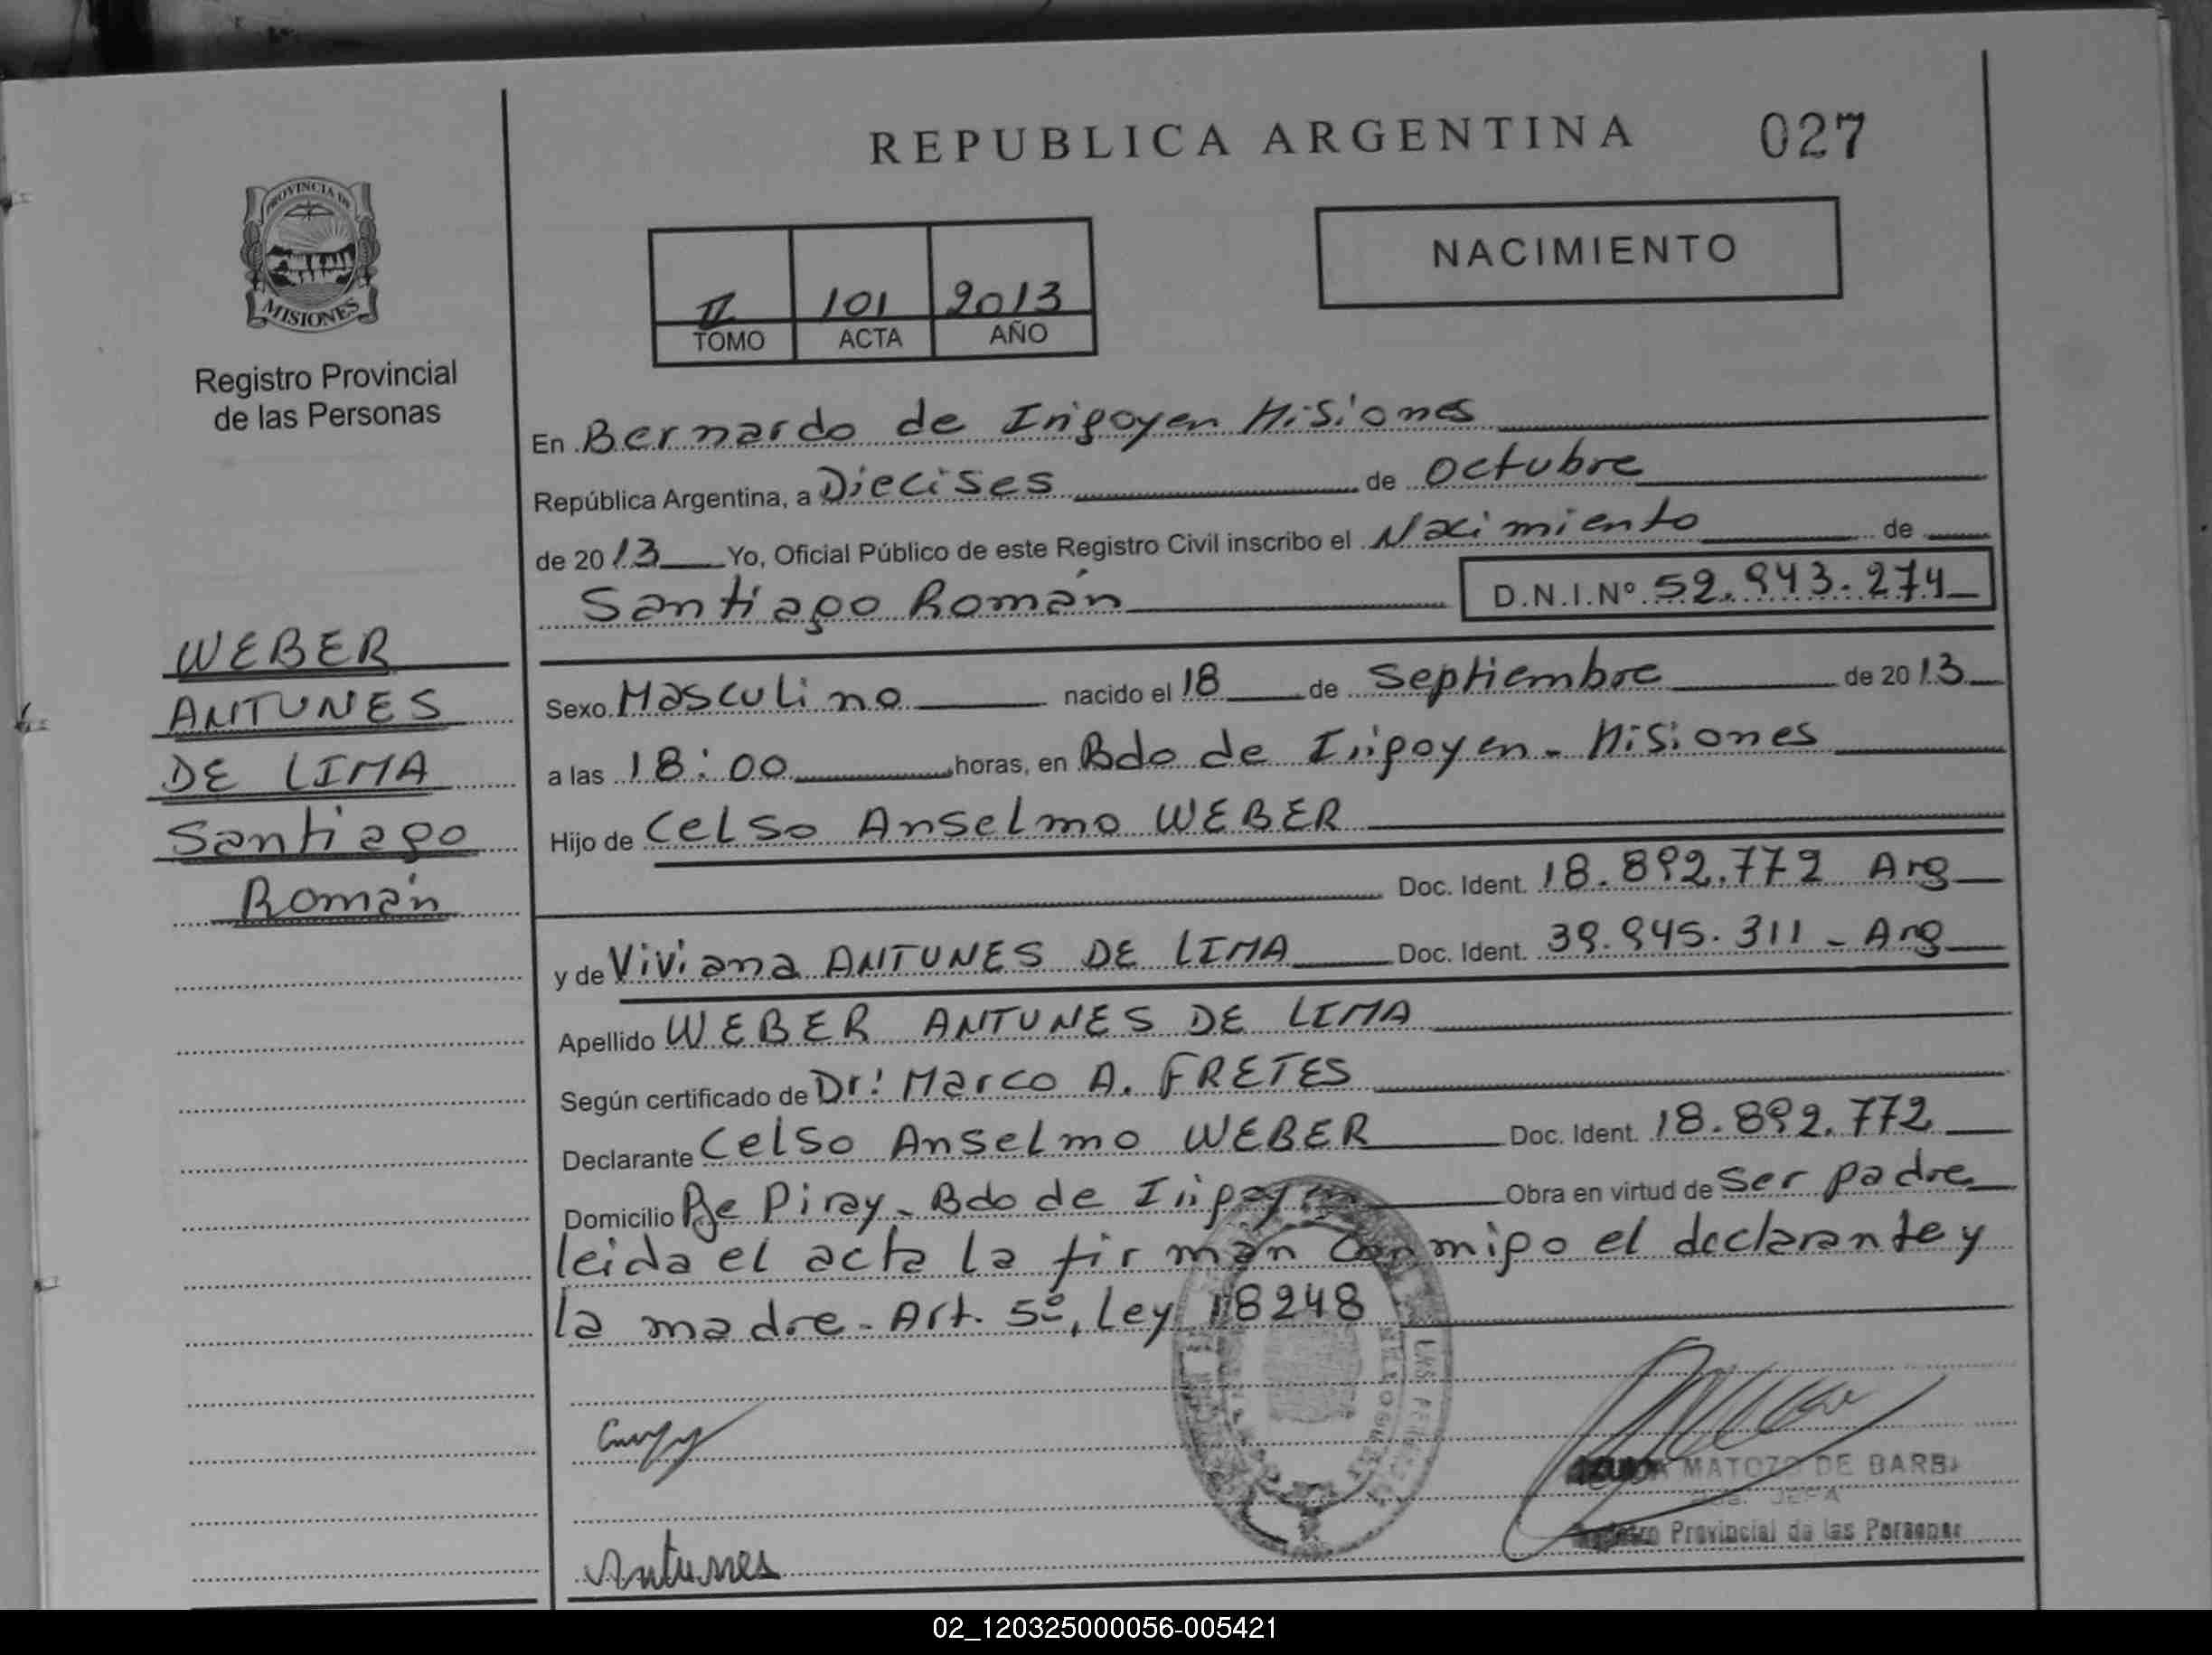 REPUBLICA ARGENTINA 027
PROVINCIA DE
MISIONES
Registro Provincial
de las Personas
NACIMIENTO
II 101 2013
TOMO ACTA AÑO
En Bernardo de Irigoyen Misiones
República Argentina, a Diecises de octubre
de 2013 Yo, Oficial Público de este Registro Civil inscribo el Nacimiento de
Santiago Román D.N.I.Nº 52.943.274
WEBER
ANTUNES
DE LIMA
Santiago
Román
Sexo Masculino nacido el 18 de Septiembre de 2013
a las 18:00 horas, en Bdo de Irigoyen - Misiones
Hijo de Celso Anselmo WEBER
Doc. Ident. 18.892.772 Arg
y de Viviana ANTUNES DE LIMA Doc. Ident. 39.945.311 - Arg
Apellido WEBER ANTUNES DE LIMA
Según certificado de Dr: Marco A. FRETES
Declarante Celso Anselmo WEBER Doc. Ident. 18.892.772
Domicilio Pje Piray - Bdo de Irigoyen Obra en virtud de Ser padre
leida el acta la firman conmigo el declarante y
la madre - Art. 5º, Ley 18248
MATOZO DE BARB
JEFA
Provincial de las Personas
Antunes
02_120325000056-005421